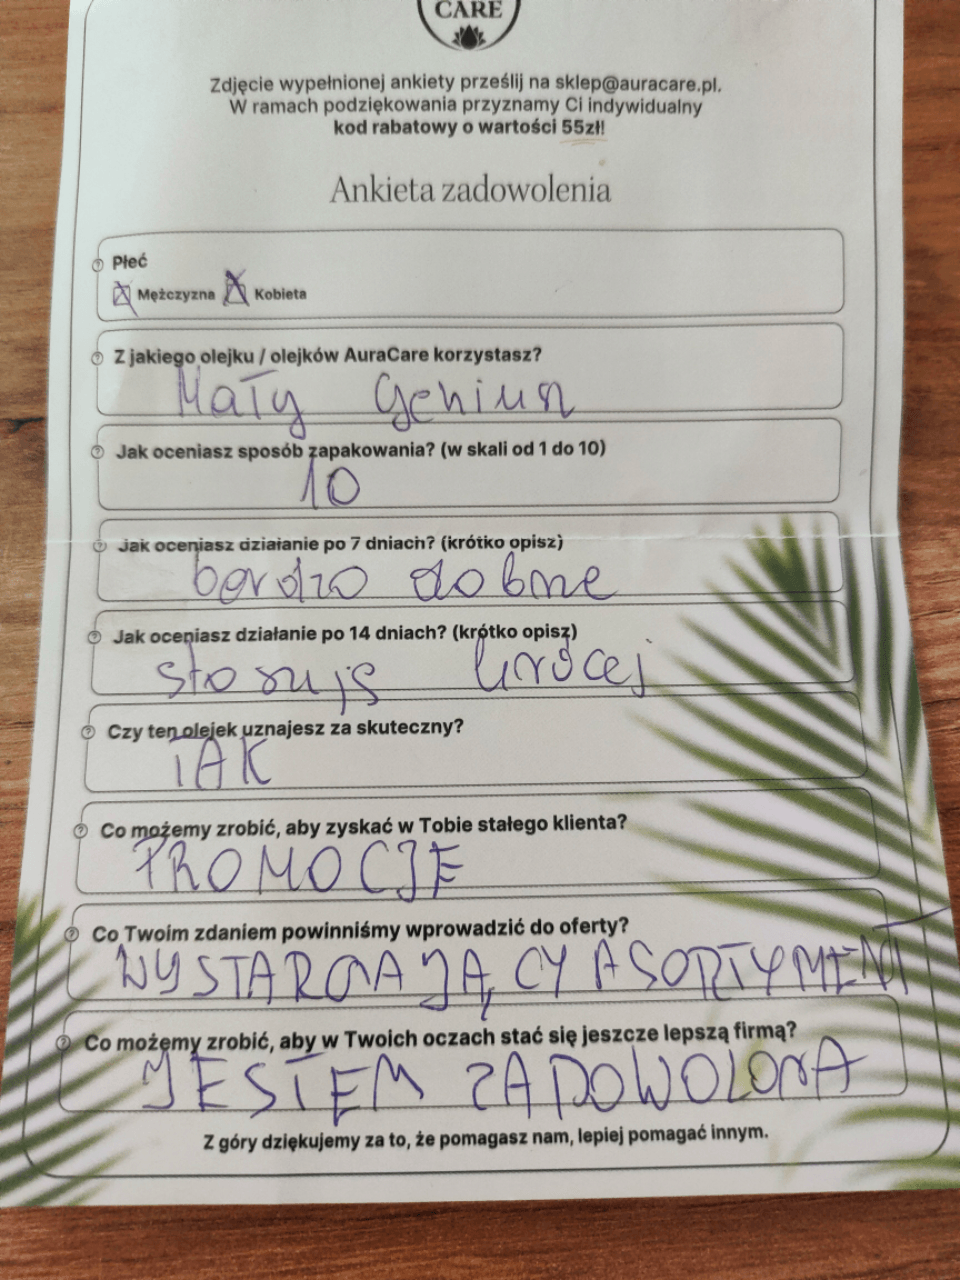 CARE
Zdjęcie wypełnionej ankiety prześlij na sklep@auracare.pl.
W ramach podziękowania przyznamy Ci indywidualny
kod rabatowy o wartości 55zł!
Ankieta zadowolenia
Płeć
Mężczyzna Kobieta
Z jakiego olejku / olejków AuraCare korzystasz?
Mały Geniusz
Jak oceniasz sposób zapakowania? (w skali od 1 do 10)
10
Jak oceniasz działanie po 7 dniach? (krótko opisz)
bardzo dobrze
Jak oceniasz działanie po 14 dniach? (krótko opisz)
stosuję krócej
Czy ten olejek uznajesz za skuteczny?
TAK
Co możemy zrobić, aby zyskać w Tobie stałego klienta?
PROMOCJE
Co Twoim zdaniem powinniśmy wprowadzić do oferty?
WYSTARCZAJĄCY ASORTYMENT
Co możemy zrobić, aby w Twoich oczach stać się jeszcze lepszą firmą?
JESTEM ZADOWOLONA
Z góry dziękujemy za to, że pomagasz nam, lepiej pomagać innym.